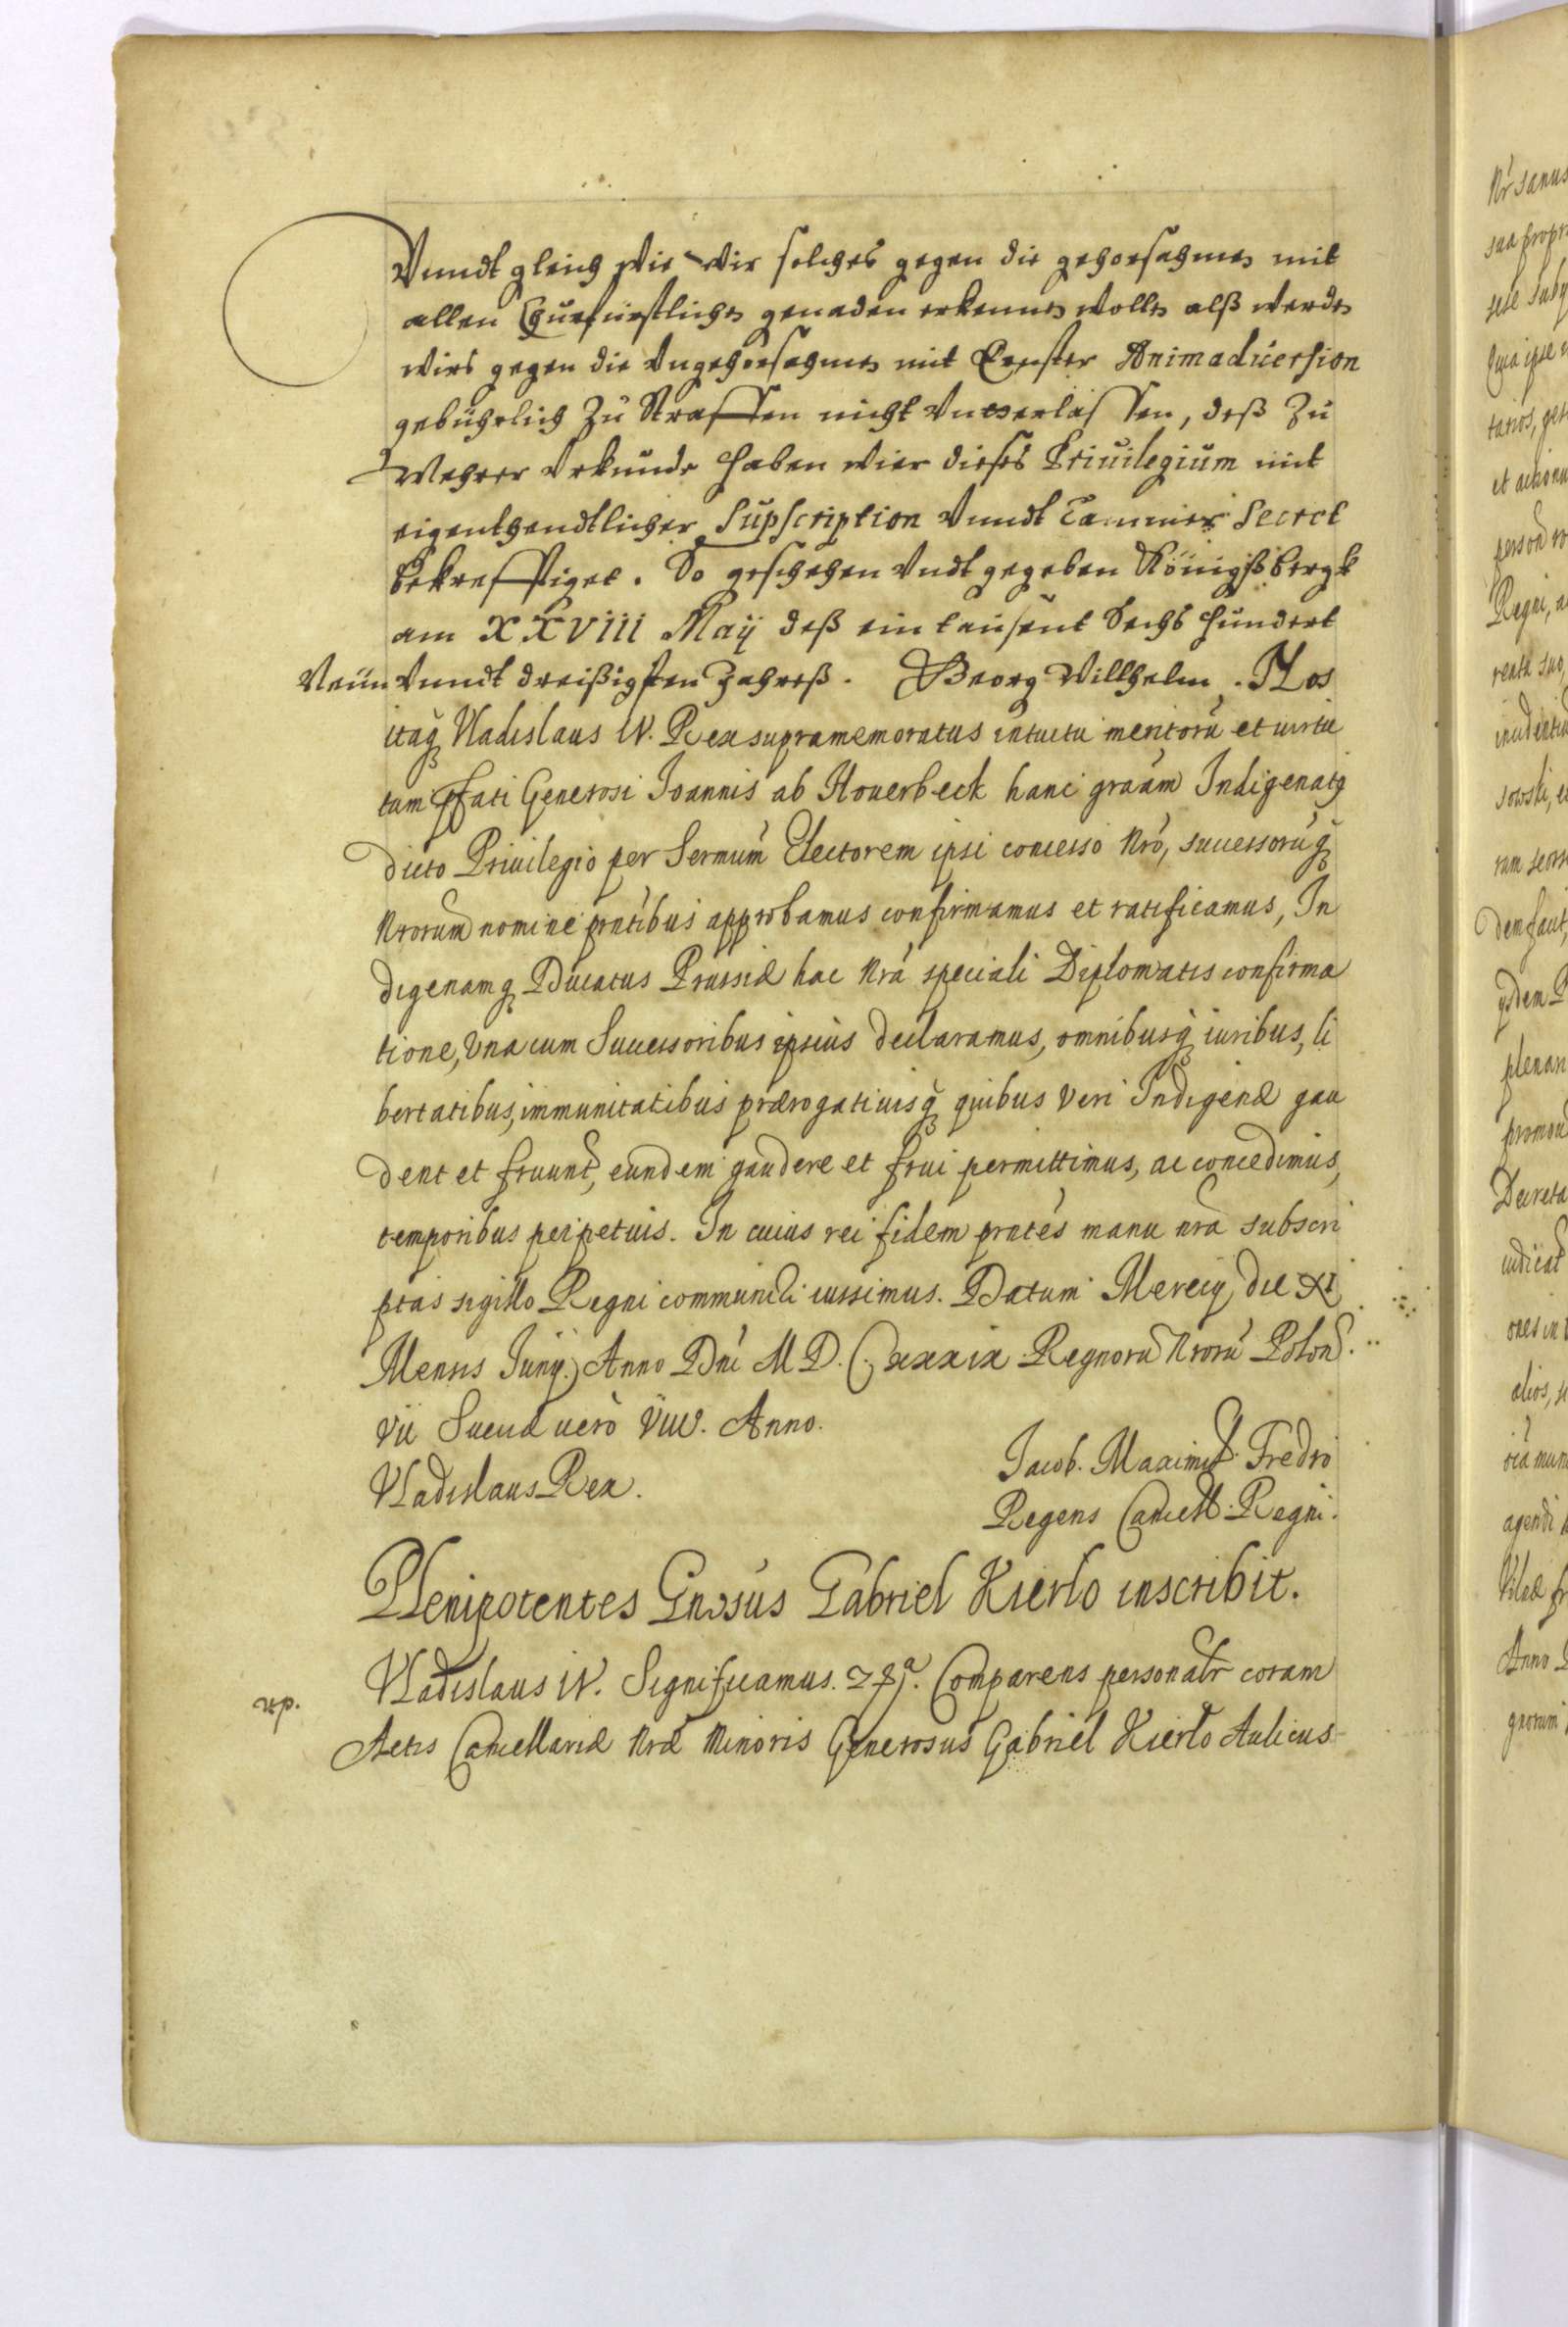 Vnndt gleich wie wir solches gegen die gehorsahmen mit
allen Churfürstlichen genaden erkennen wollen alß werden
wirs gegen die Vngehorsahmen mit Ernster Animaduersion
gebührlich Zu Straffen nicht Vnterlassen, deß Zu
Wahrer Vrkunde haben wier dieses Priuilegium mit
eigenthendtlicher Supscription Vnndt Cammer Secret
bekrefftiget. So geschehen Vndt gegeben Königßbergk
am XXVIII Maÿ deß ein tausent Sechs hundert
Neün Vnndt dreißigsten Jahreß. Georg Willhelm. Nos
itaq Vladislaus IV. Rex supramemoratus intuitu meritorū et uirtu
tum pfati Generosi Joannis ab Houerbeck hanc graām Indigenatq
dicto Priuilegio per Sermum Electorem ipsi concesso Nrō, successorūq
Nrorum nomine pntibus approbamus confirmamus et ratificamus, In
digenamq Ducatus Prussiæ hac Nrā speciali Diplomatis confirma
tione, Vna cum Successoribus ipsius declaramus, omnibusq iuribus, li
bertatibus, immunitatibus prærogatiuisq quibus Veri Indigenæ gau
dent et fruunt, eundem gaudere et frui permittimus, ac concedimus,
temporibus perpetuis. In cuius rei fidem pntes manu nrā subscri
ptas sigillo Regni communiri iussimus. Datum Merecij, die XI
Mensis Junij. Anno Dni M D. C. xxxix Regnorū Nrorū Polon.
Vii Sueciæ uero Viii. Anno.
Vladislaus Rex.
Jacob. Maximil. Fredro
Regens Cancell. Regni.
Plenipotentes Gnosus Gabriel Kierlo inscribit.
Vladislaus IV. Significamus. Comparens personalr coram
Actis Cancellariæ Nræ Minoris Generosus Gabriel Kierlo Aulicus